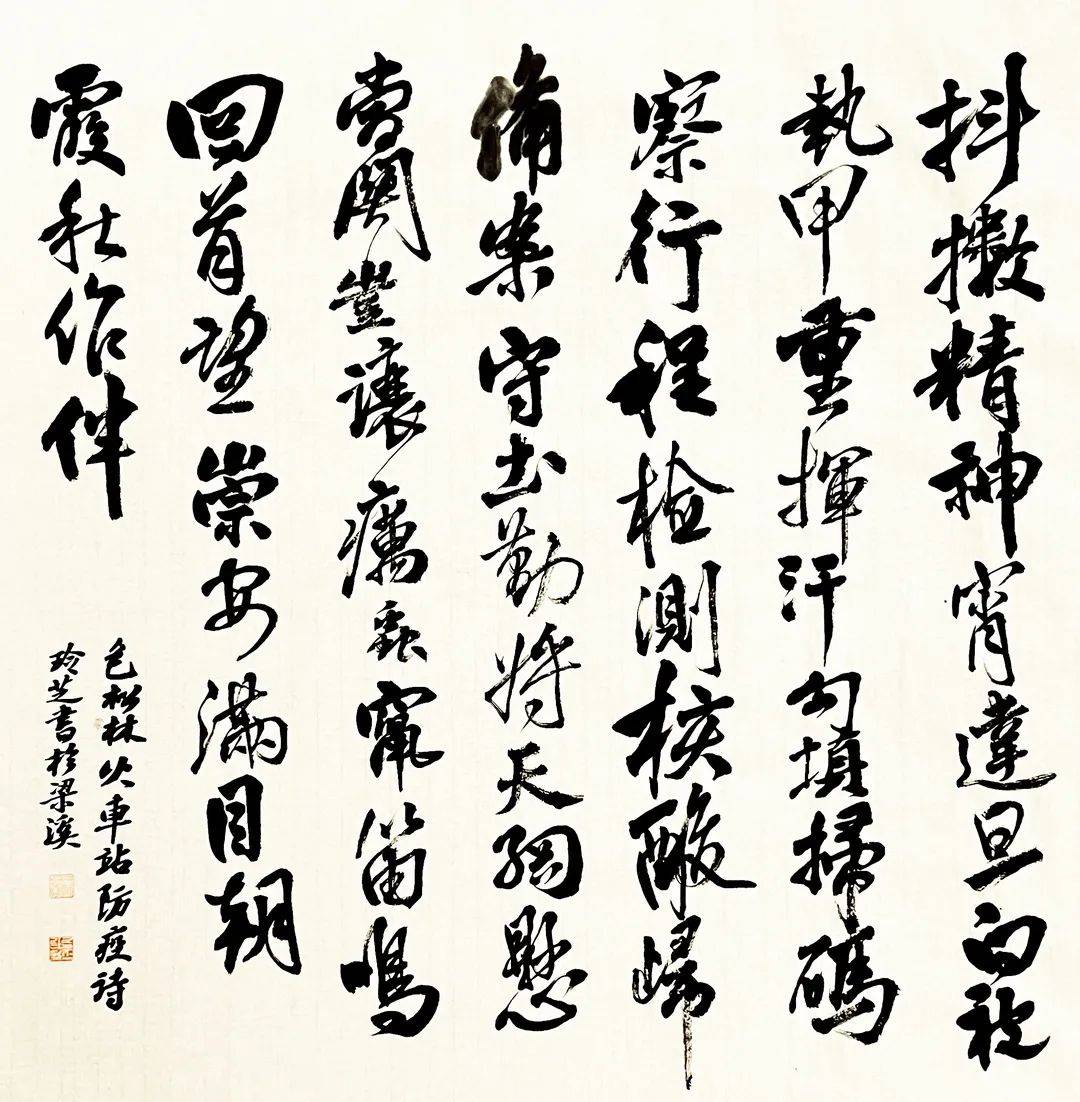 抖擻精神宵達旦白被
執甲重揮汗勾填掃碼
察行程檢測核酸歸
備案守土勤將天網懸
當關豈讓癘蟲竄笛鳴
回首望崇安滿目朝
霞秋作伴
包松林火車站防疫詩
玲芝書於梁溪